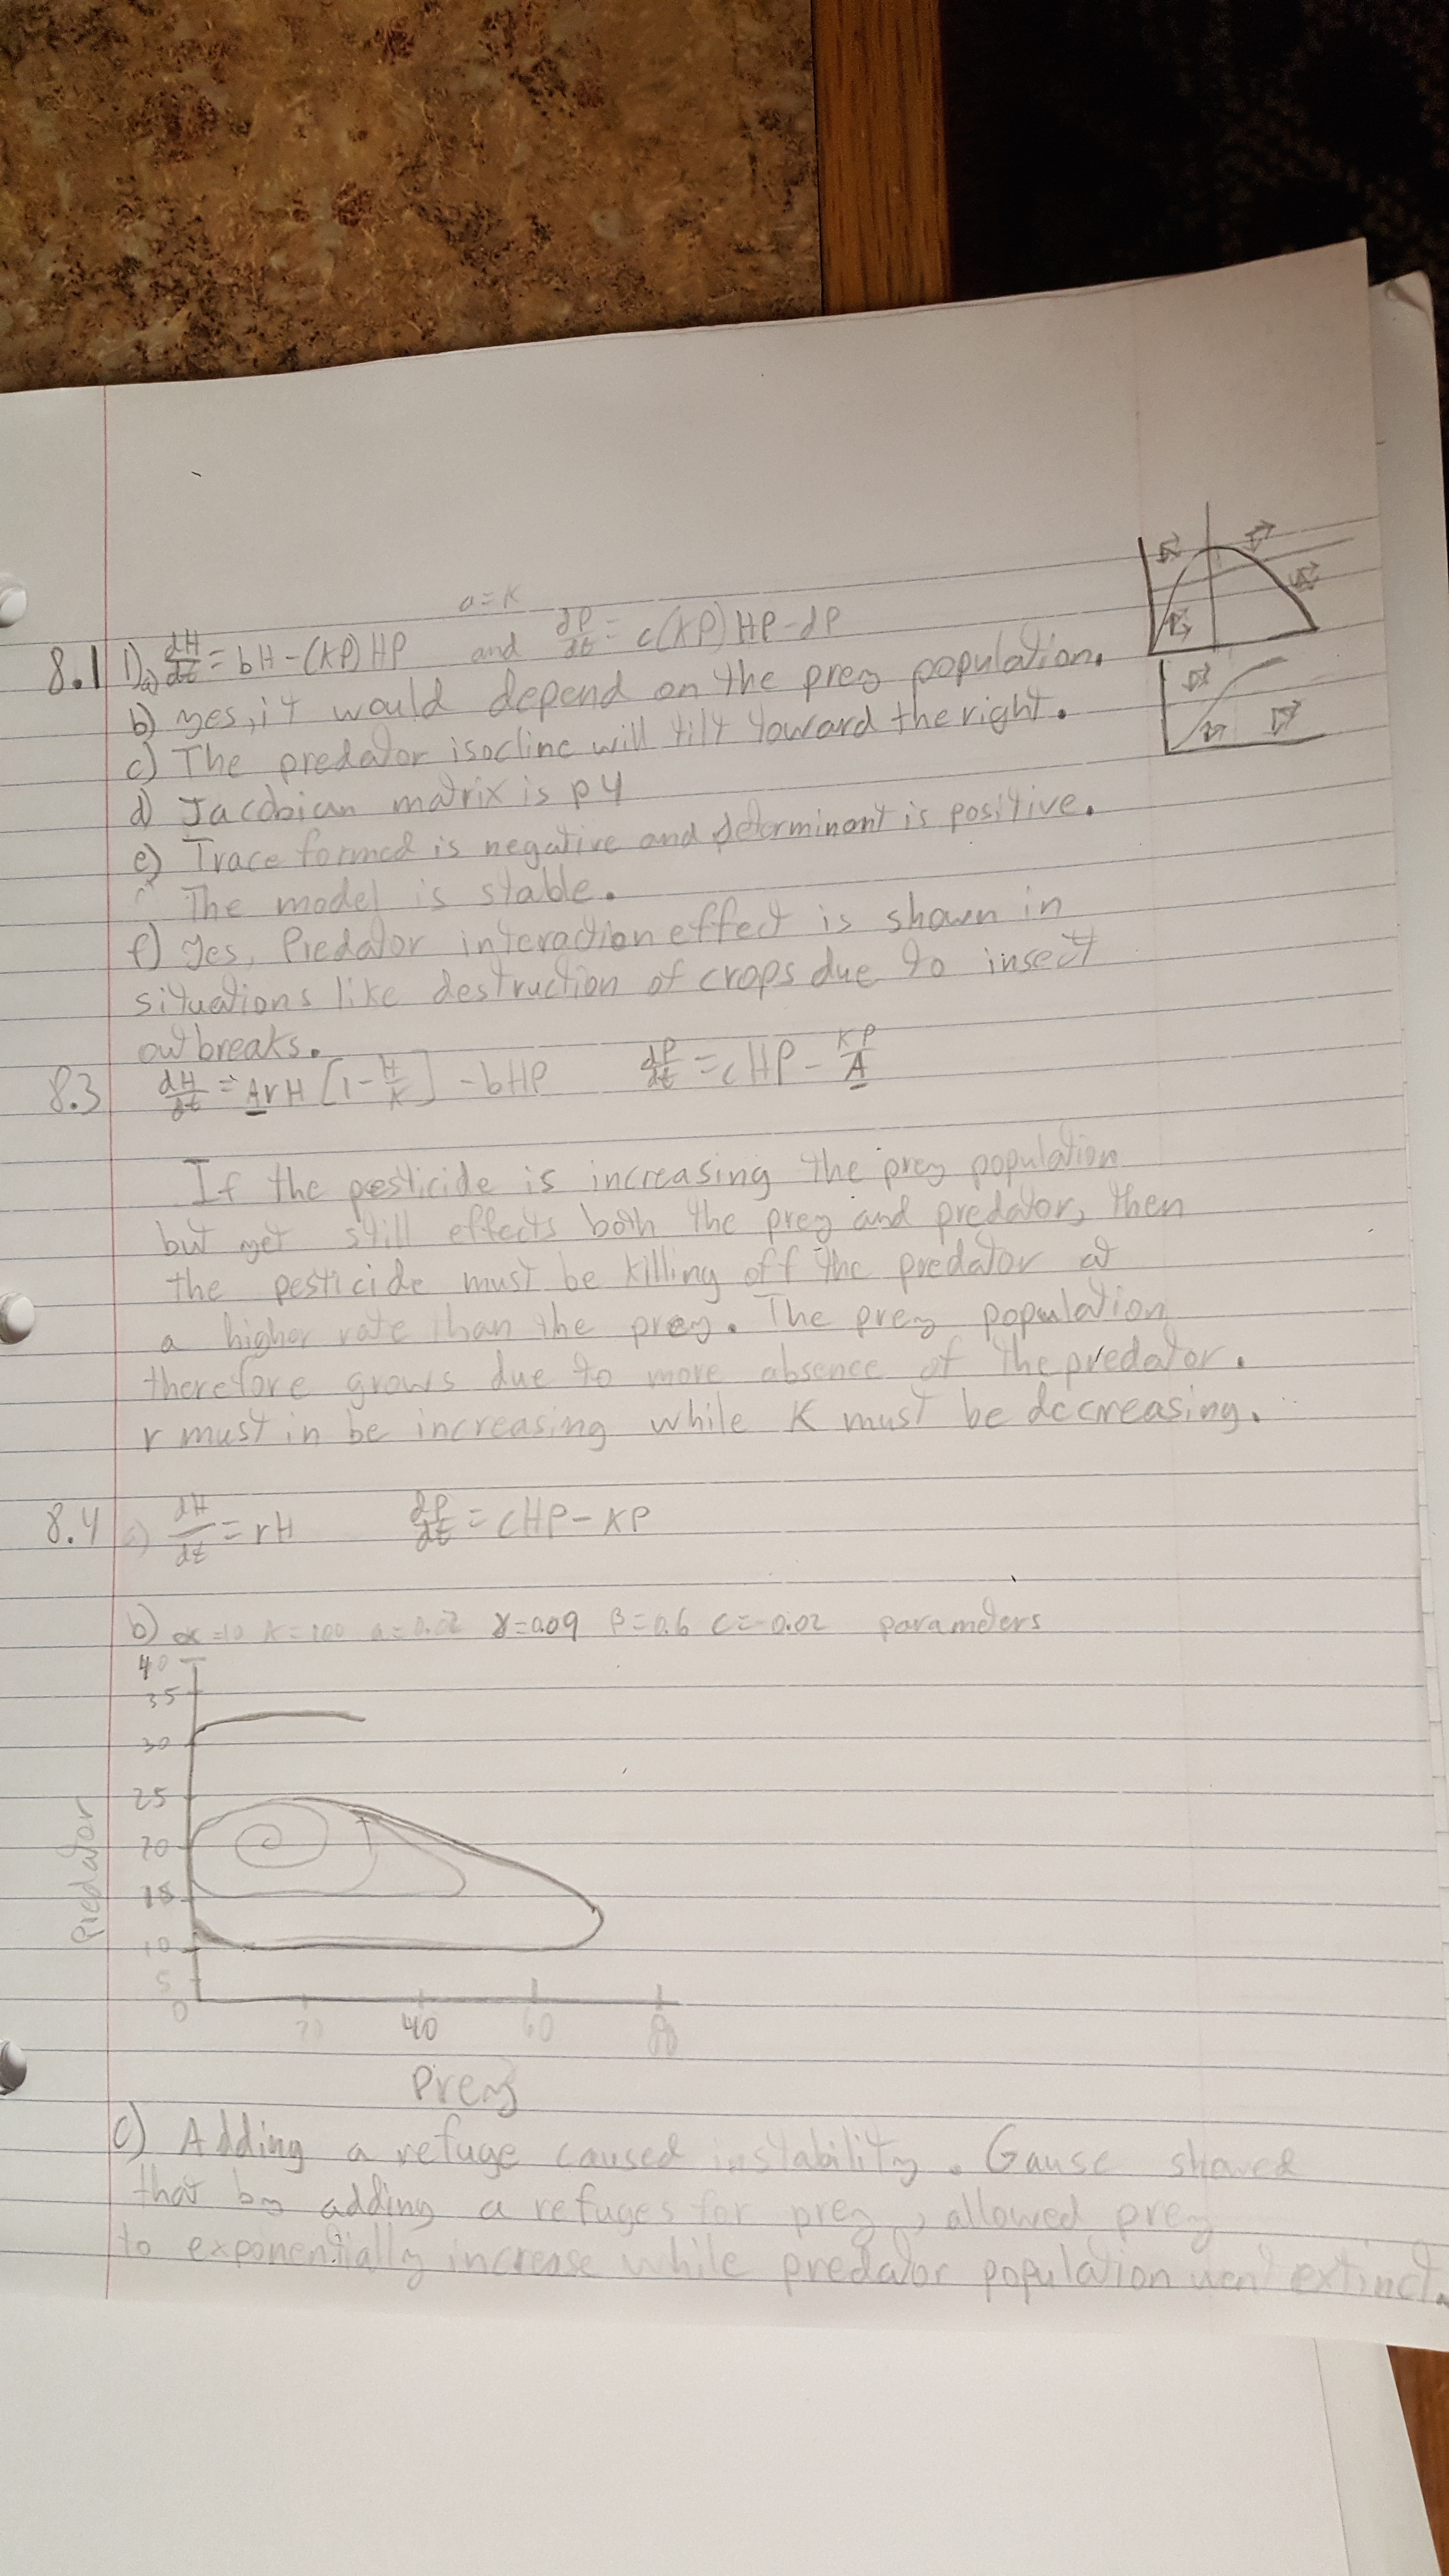 a=K
8.1 1) a) dH/dt = bH - (KP)HP and dP/dt = c(KP)HP - dP
b) yes, it would depend on the prey population.
c) The predator isocline will tilt toward the right.
d) Jacobian matrix is p4
e) Trace formed is negative and determinant is positive.
The model is stable.
f) Yes, Predator interaction effect is shown in
situations like destruction of crops due to insect
outbreaks.
8.3 dH/dt = ArH [1 - H/K] - bHP dP/dt = cHP - KP/A
If the pesticide is increasing the prey population
but yet still effects both the prey and predator, then
the pesticide must be killing off the predator at
a higher rate than the prey. The prey population
therefore grows due to more absence of the predator.
r must in be increasing while K must be decreasing.
8.4 a) dH/dt = rH dP/dt = cHP - KP
b) α=10 K=100 a=0.02 γ=0.09 β=0.6 c=-0.02 parameters
40
35
30
25
20
15
10
5
0
20 40 60 80
Predator
Prey
c) Adding a refuge caused instability. Gause showed
that by adding a refuges for prey, allowed prey
to exponentially increase while predator population went extinct.